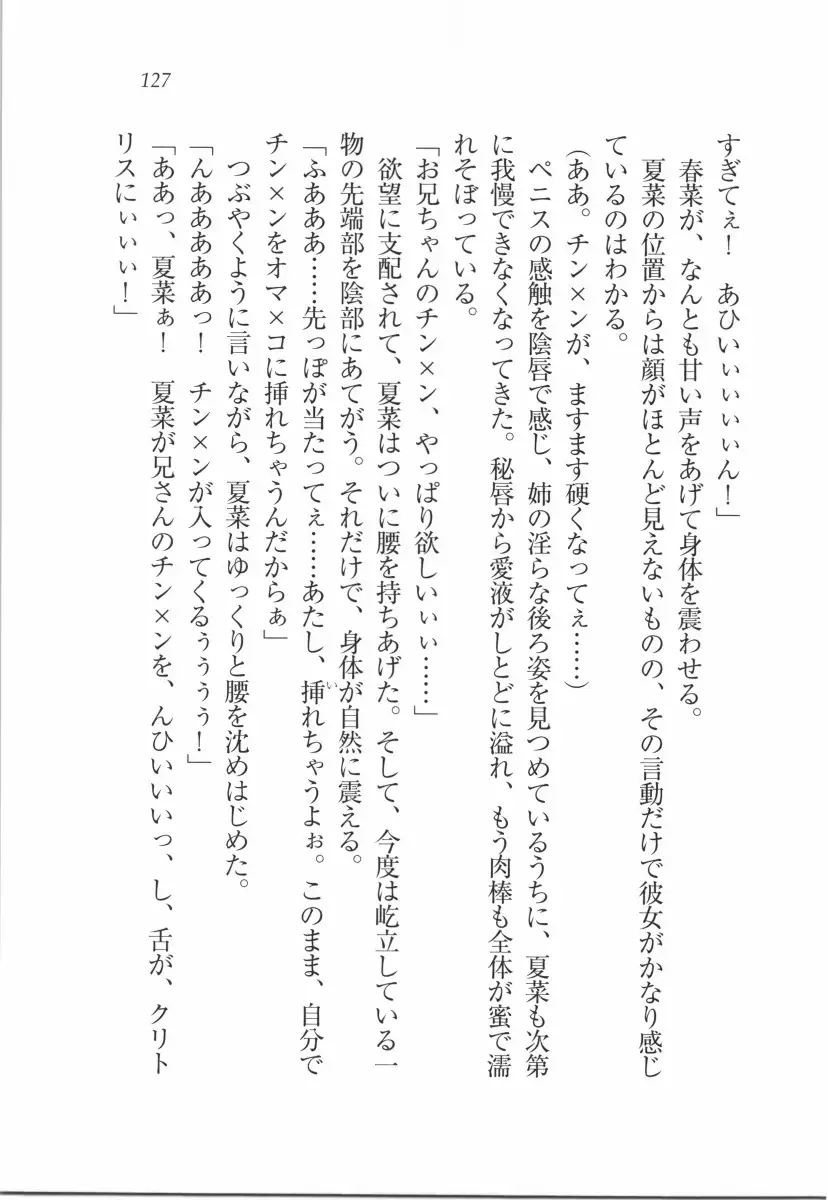 127
すぎてぇ！　あひいぃぃぃぃん！」
　春菜が、なんとも甘い声をあげて身体を震わせる。
　夏菜の位置からは顔がほとんど見えないものの、その言動だけで彼女がかなり感じ
ているのはわかる。
（ああ。チン×ンが、ますます硬くなってぇ……）
　ペニスの感触を陰唇で感じ、姉の淫らな後ろ姿を見つめているうちに、夏菜も次第
に我慢できなくなってきた。秘唇から愛液がしとどに溢れ、もう肉棒も全体が蜜で濡
れそぼっている。
「お兄ちゃんのチン×ン、やっぱり欲しいぃぃ……」
　欲望に支配されて、夏菜はついに腰を持ちあげた。そして、今度は屹立している一
物の先端部を陰部にあてがう。それだけで、身体が自然に震える。
「ふあああ……先っぽが当たってぇ……あたし、挿れちゃうよぉ。このまま、自分で
チン×ンをオマ×コに挿れちゃうんだからぁ」
　つぶやくように言いながら、夏菜はゆっくりと腰を沈めはじめた。
「んあああああっ！　チン×ンが入ってくるぅぅぅぅ！」
「ああっ、夏菜ぁ！　夏菜が兄さんのチン×ンを、んひいいいっ、し、舌が、クリト
リスにぃぃぃ！」